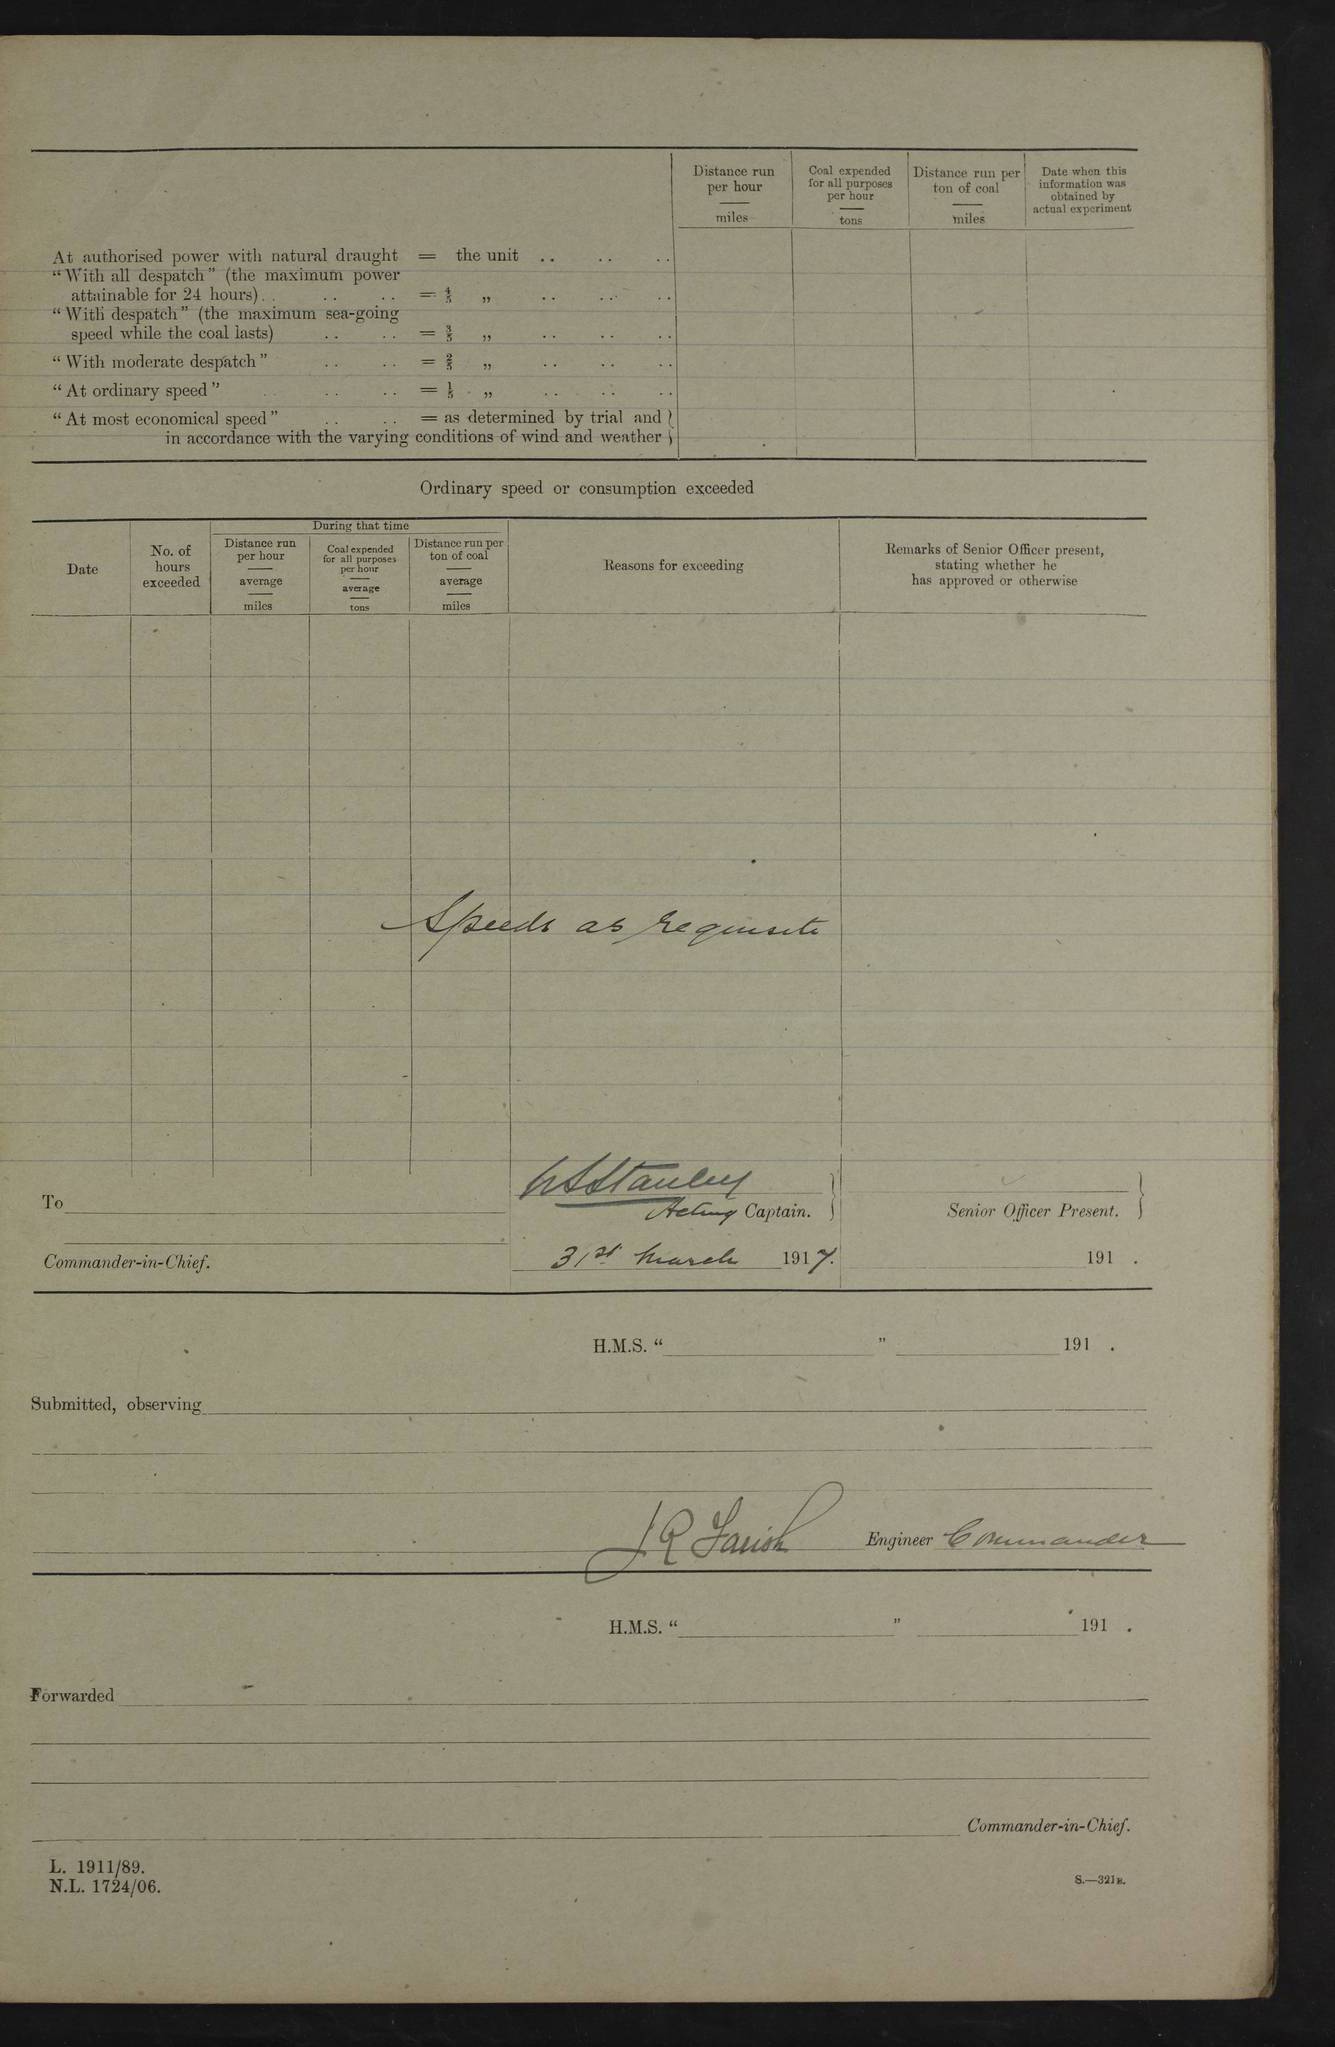 Distance run per hour miles
Coal expended for all purposes per hour tons
Distance run per ton of coal miles
Date when this information was obtained by actual experiment
At authorised power with natural draught = the unit .. .. ..
“With all despatch” (the maximum power
attainable for 24 hours) .. .. .. = 4/5 „ .. .. ..
“With despatch” (the maximum sea-going
speed while the coal lasts) .. .. = 3/5 „ .. .. ..
“With moderate despatch” .. .. = 2/5 „ .. .. ..
“At ordinary speed” .. .. .. = 1/5 „ .. .. ..
“At most economical speed” .. .. = as determined by trial and }
in accordance with the varying conditions of wind and weather }
Ordinary speed or consumption exceeded
Date
No. of hours exceeded
During that time
Distance run per hour average miles
Coal expended for all purposes per hour average tons
Distance run per ton of coal average miles
Reasons for exceeding
Remarks of Senior Officer present, stating whether he has approved or otherwise
Speeds as requisite
Stanley
To
Acting Captain. }
Senior Officer Present. }
Commander-in-Chief.
31st March 1917.
191 .
H.M.S. “ ” 191 .
Submitted, observing
J R Farish Engineer Commander
H.M.S. “ ” 191 .
Forwarded
Commander-in-Chief.
L. 1911/89.
N.L. 1724/06.
S.—321E.